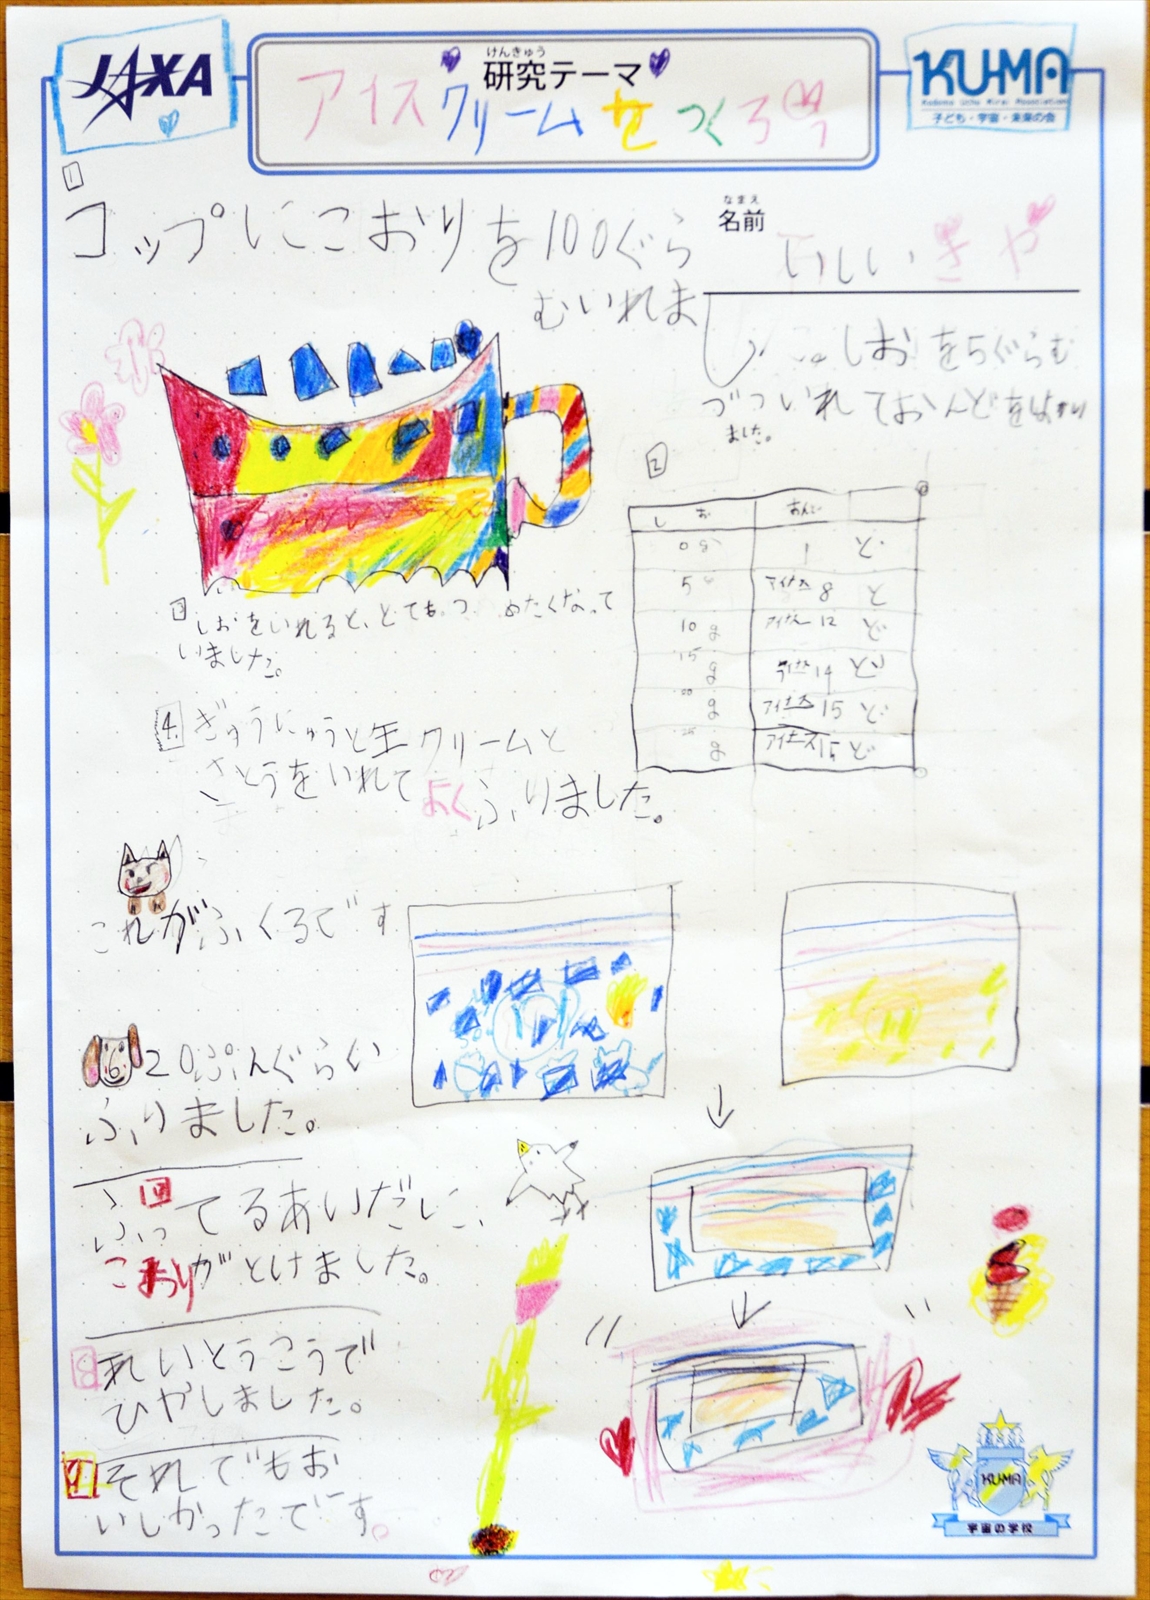 JAXA
けんきゅう
研究テーマ
アイスクリームをつくろう
KU-MA
Kodomo Uchu Mirai Association
子ども・宇宙・未来の会
1
コップにこおりを100ぐら
むいれま
なまえ
名前
しおを5ぐらむ
づついれておんどをはかり
ました。
2
しお おんど
0 1 ど
5 マイナス 8 ど
10 g マイナス 12 ど
15 g マイナス 14 ど
g マイナス 15 ど
g マイナス 15 ど
3
しおをいれると、とてもつめたくなって
いました。
4
ぎゅうにゅうと生クリームと
さとうをいれてよくふりました。
これがふくろです
6 20ぷんぐらい
ふりました。
ふってるあいだに、
こおりがとけました。
8 れいとうこうで
ひやしました。
それでもお
いしかったでーす。
KU-MA
宇宙の学校